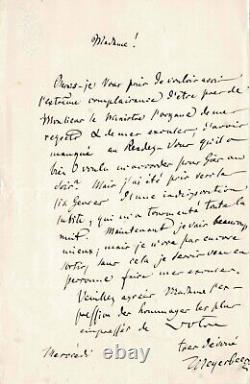 Madame!
Oserais-je vous prier de vouloir avoir
l'extrême complaisance d'être près de
Monsieur le Ministre l'organe de mes
regrets & de mes excuses, d'avoir
manqué au Rendez-Vous qu'il a
bien voulu m'accorder pour hier au
soir? Mais j'ai été pris vers la
d'une indisposition
subite, qui m'a tourmenté toute la
nuit. Maintenant je vais beaucoup
mieux, mais je n'ose pas encore
sortir, sans cela je serais venu en
personne faire mes excuses.
Veuillez agréer Madame l'ex-
pression des hommages les plus
empressés de Votre
très dévoué
Meyerbeer
Mercredi